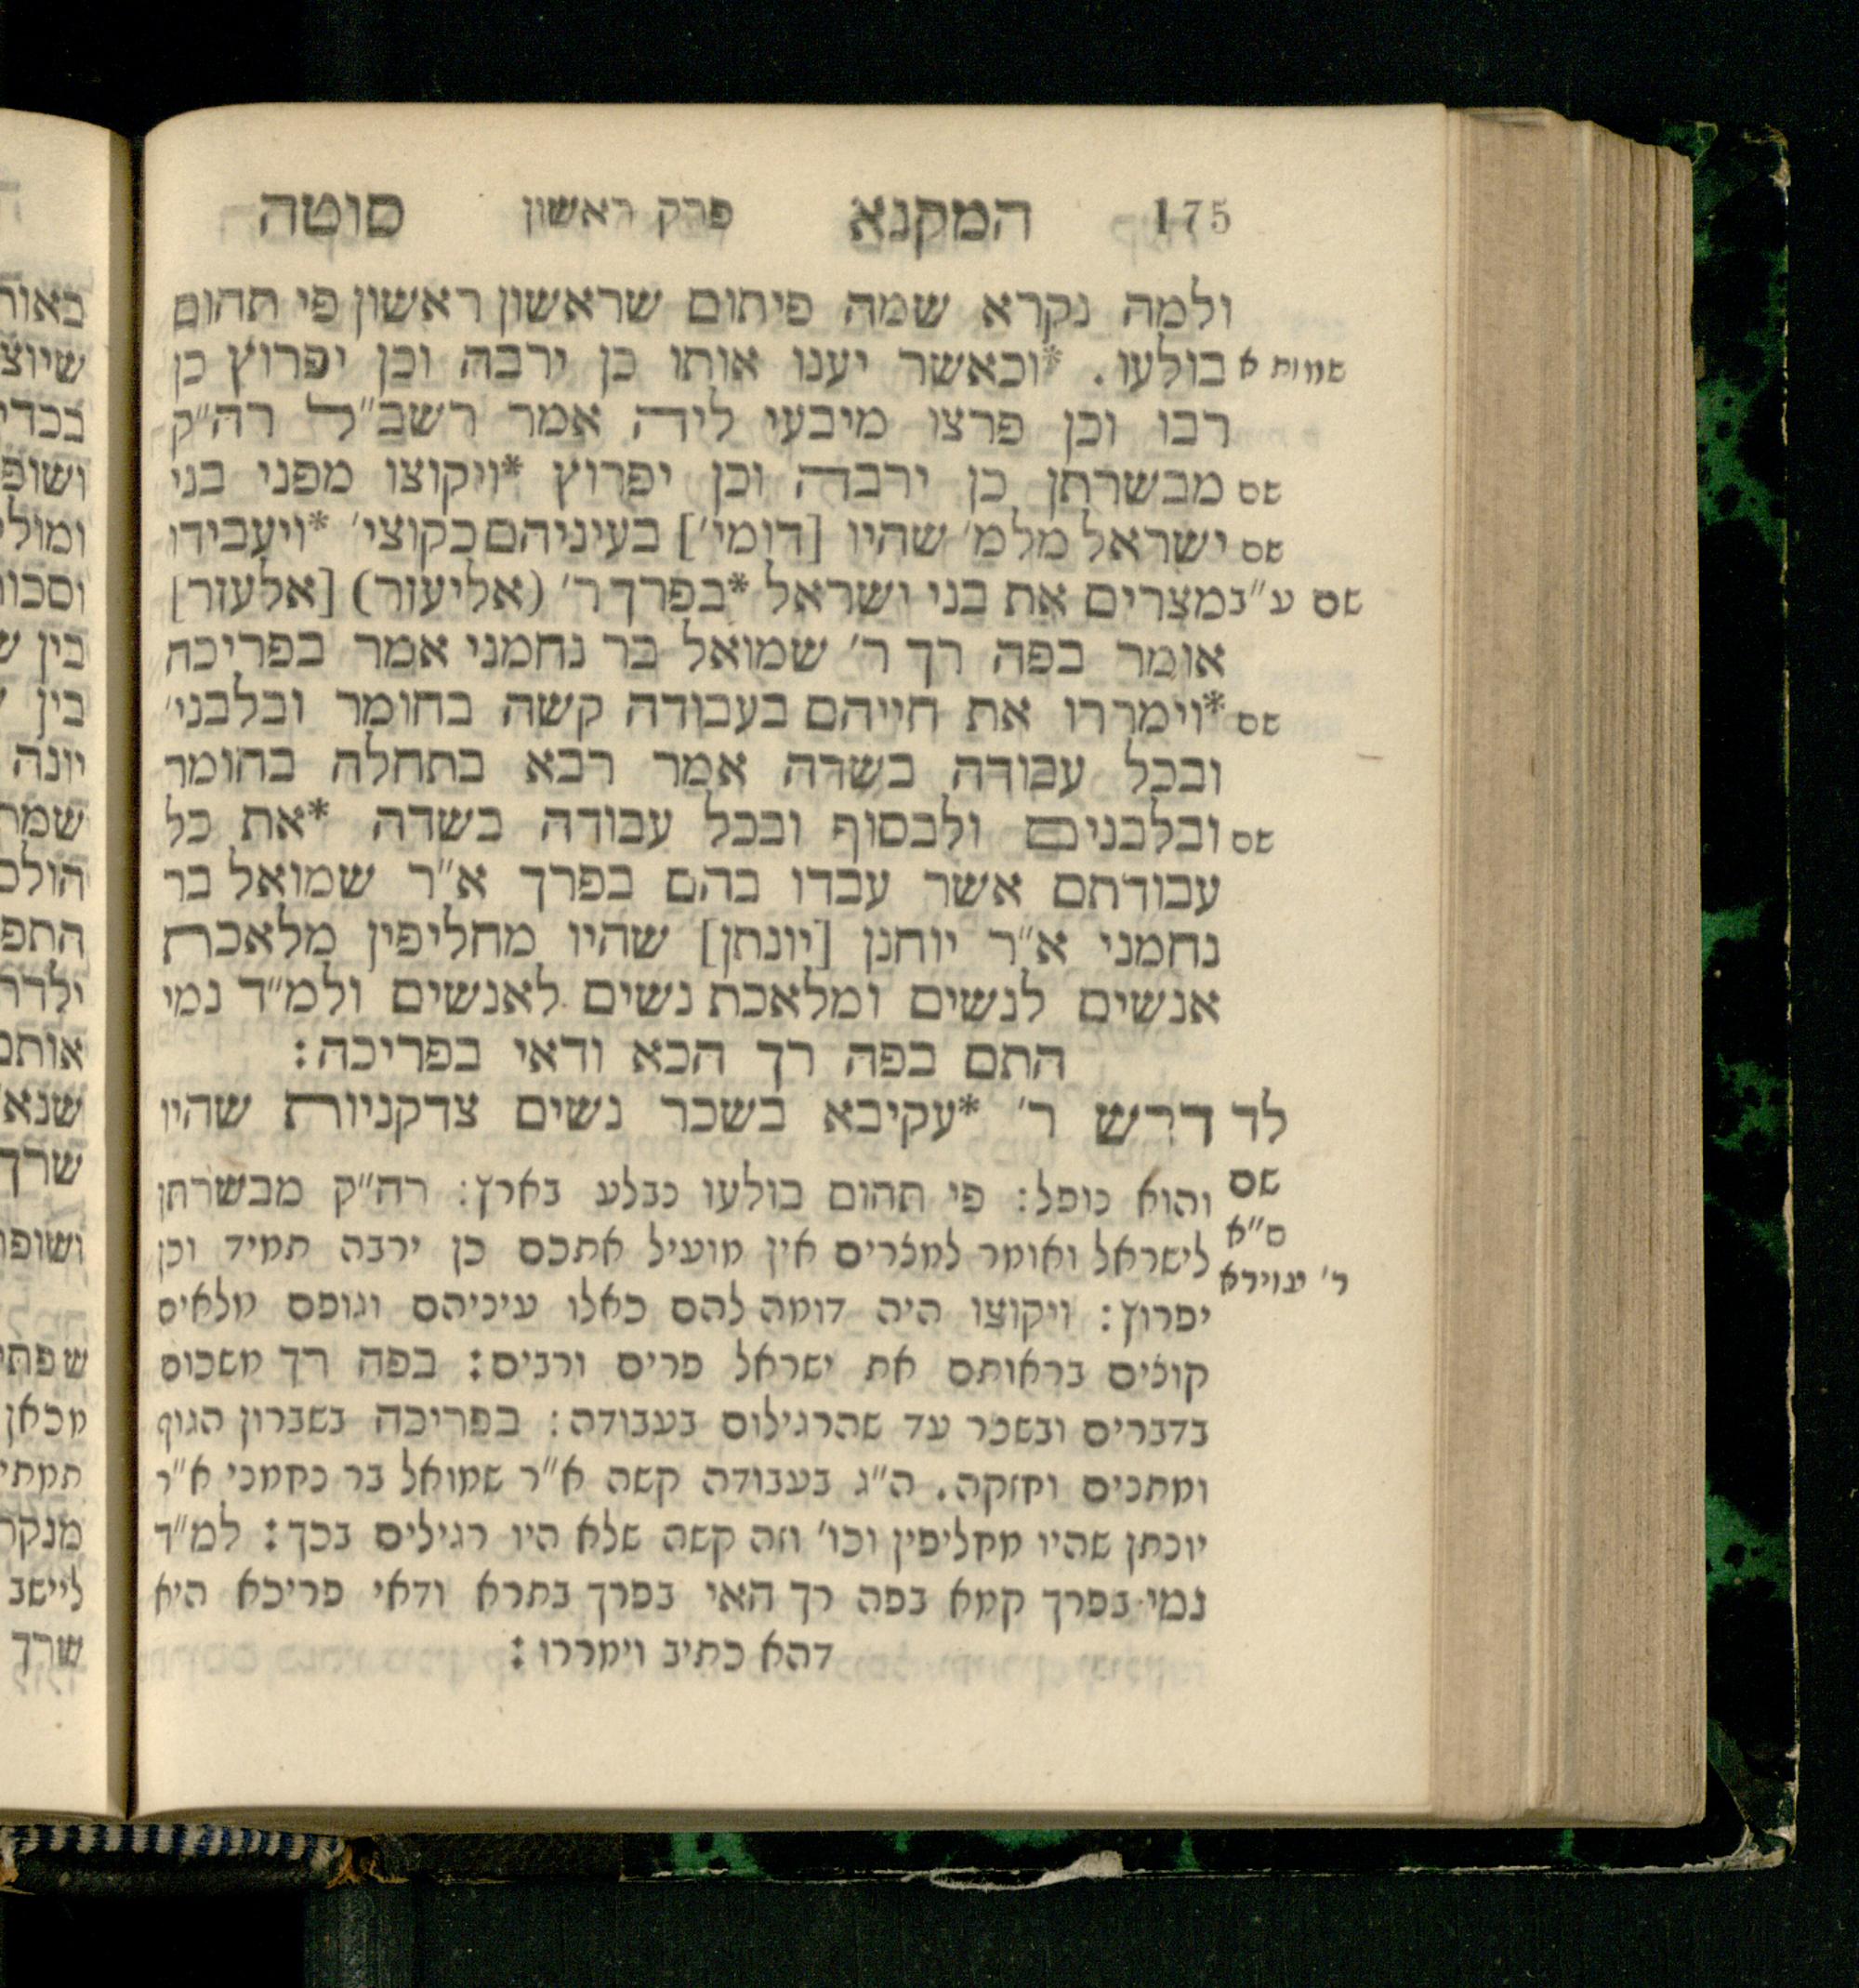 175 המקנא פרק ראשון סוטה
ולמה נקרא שמה פיתום שראשון ראשון פי תהום
שמות א בולעו. *וכאשר יענו אותו כן ירבה וכן יפרוץ כן
רבו וכן פרצו מיבעי ליה אמר רשב״ל רה״ק
שם מבשרתן כן ירבה וכן יפרוץ *ויקוצו מפני בני
שם ישראל מלמ׳ שהיו [דומי׳] בעיניהם כקוצי׳ *ויעבידו
שם ע״ב מצרים את בני ישראל *בפרך ר׳ (אליעזר) [אלעזר]
אומר בפה רך ר׳ שמואל בר נחמני אמר בפריכה
שם *וימררו את חייהם בעבודה קשה בחומר ובלבני׳
ובכל עבודה בשדה אמר רבא בתחלה בחומר
שם ובלבנים ולבסוף ובכל עבודה בשדה *את כל
עבודתם אשר עבדו בהם בפרך א״ר שמואל בר
נחמני א״ר יוחנן [יונתן] שהיו מחליפין מלאכת
אנשים לנשים ומלאכת נשים לאנשים ולמ״ד נמי
התם בפה רך הכא ודאי בפריכה:
לד דרש ר׳ *עקיבא בשכר נשים צדקניות שהיו
שם
ס״א
ר׳ עוירא
והוא נופל: פי תהום בולעו נבלע בארץ: רה״ק מבשרתן
לישראל ואומר למצרים אין מועיל אתכם כן ירבה תמיד וכן
יפרוץ: ויקוצו היה דומה להם כאלו עיניהם וגופם מלאים
קוצים בראותם את ישראל פרים ורבים: בפה רך משכום
בדברים ובשכר עד שהרגילום בעבודה: בפריכה בשברון הגוף
ומתנים וחזקה. ה״ג בעבודה קשה א״ר שמואל בר נחמני א״ר
יונתן שהיו מחליפין וכו׳ וזה קשה שלא היו רגילים בכך: למ״ד
נמי בפרך קמא בפה רך האי בפרך בתרא ודאי פריכא היא
דהא כתיב וימררו: